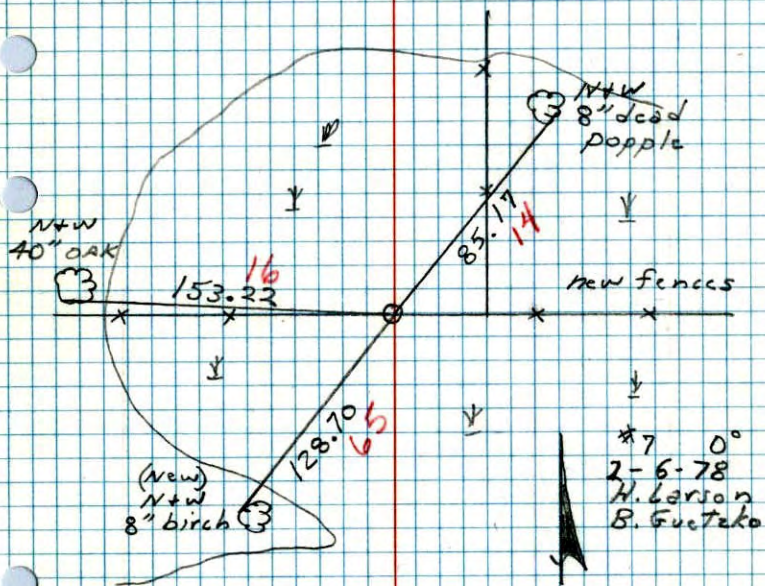 N+W
8" dead
popple
N+W
40" OAK
85.17
14
16
153.22
new fences
128.70
65
(New)
N+W
8" birch
#7 0°
2-6-78
H. Larson
B. Guetzko